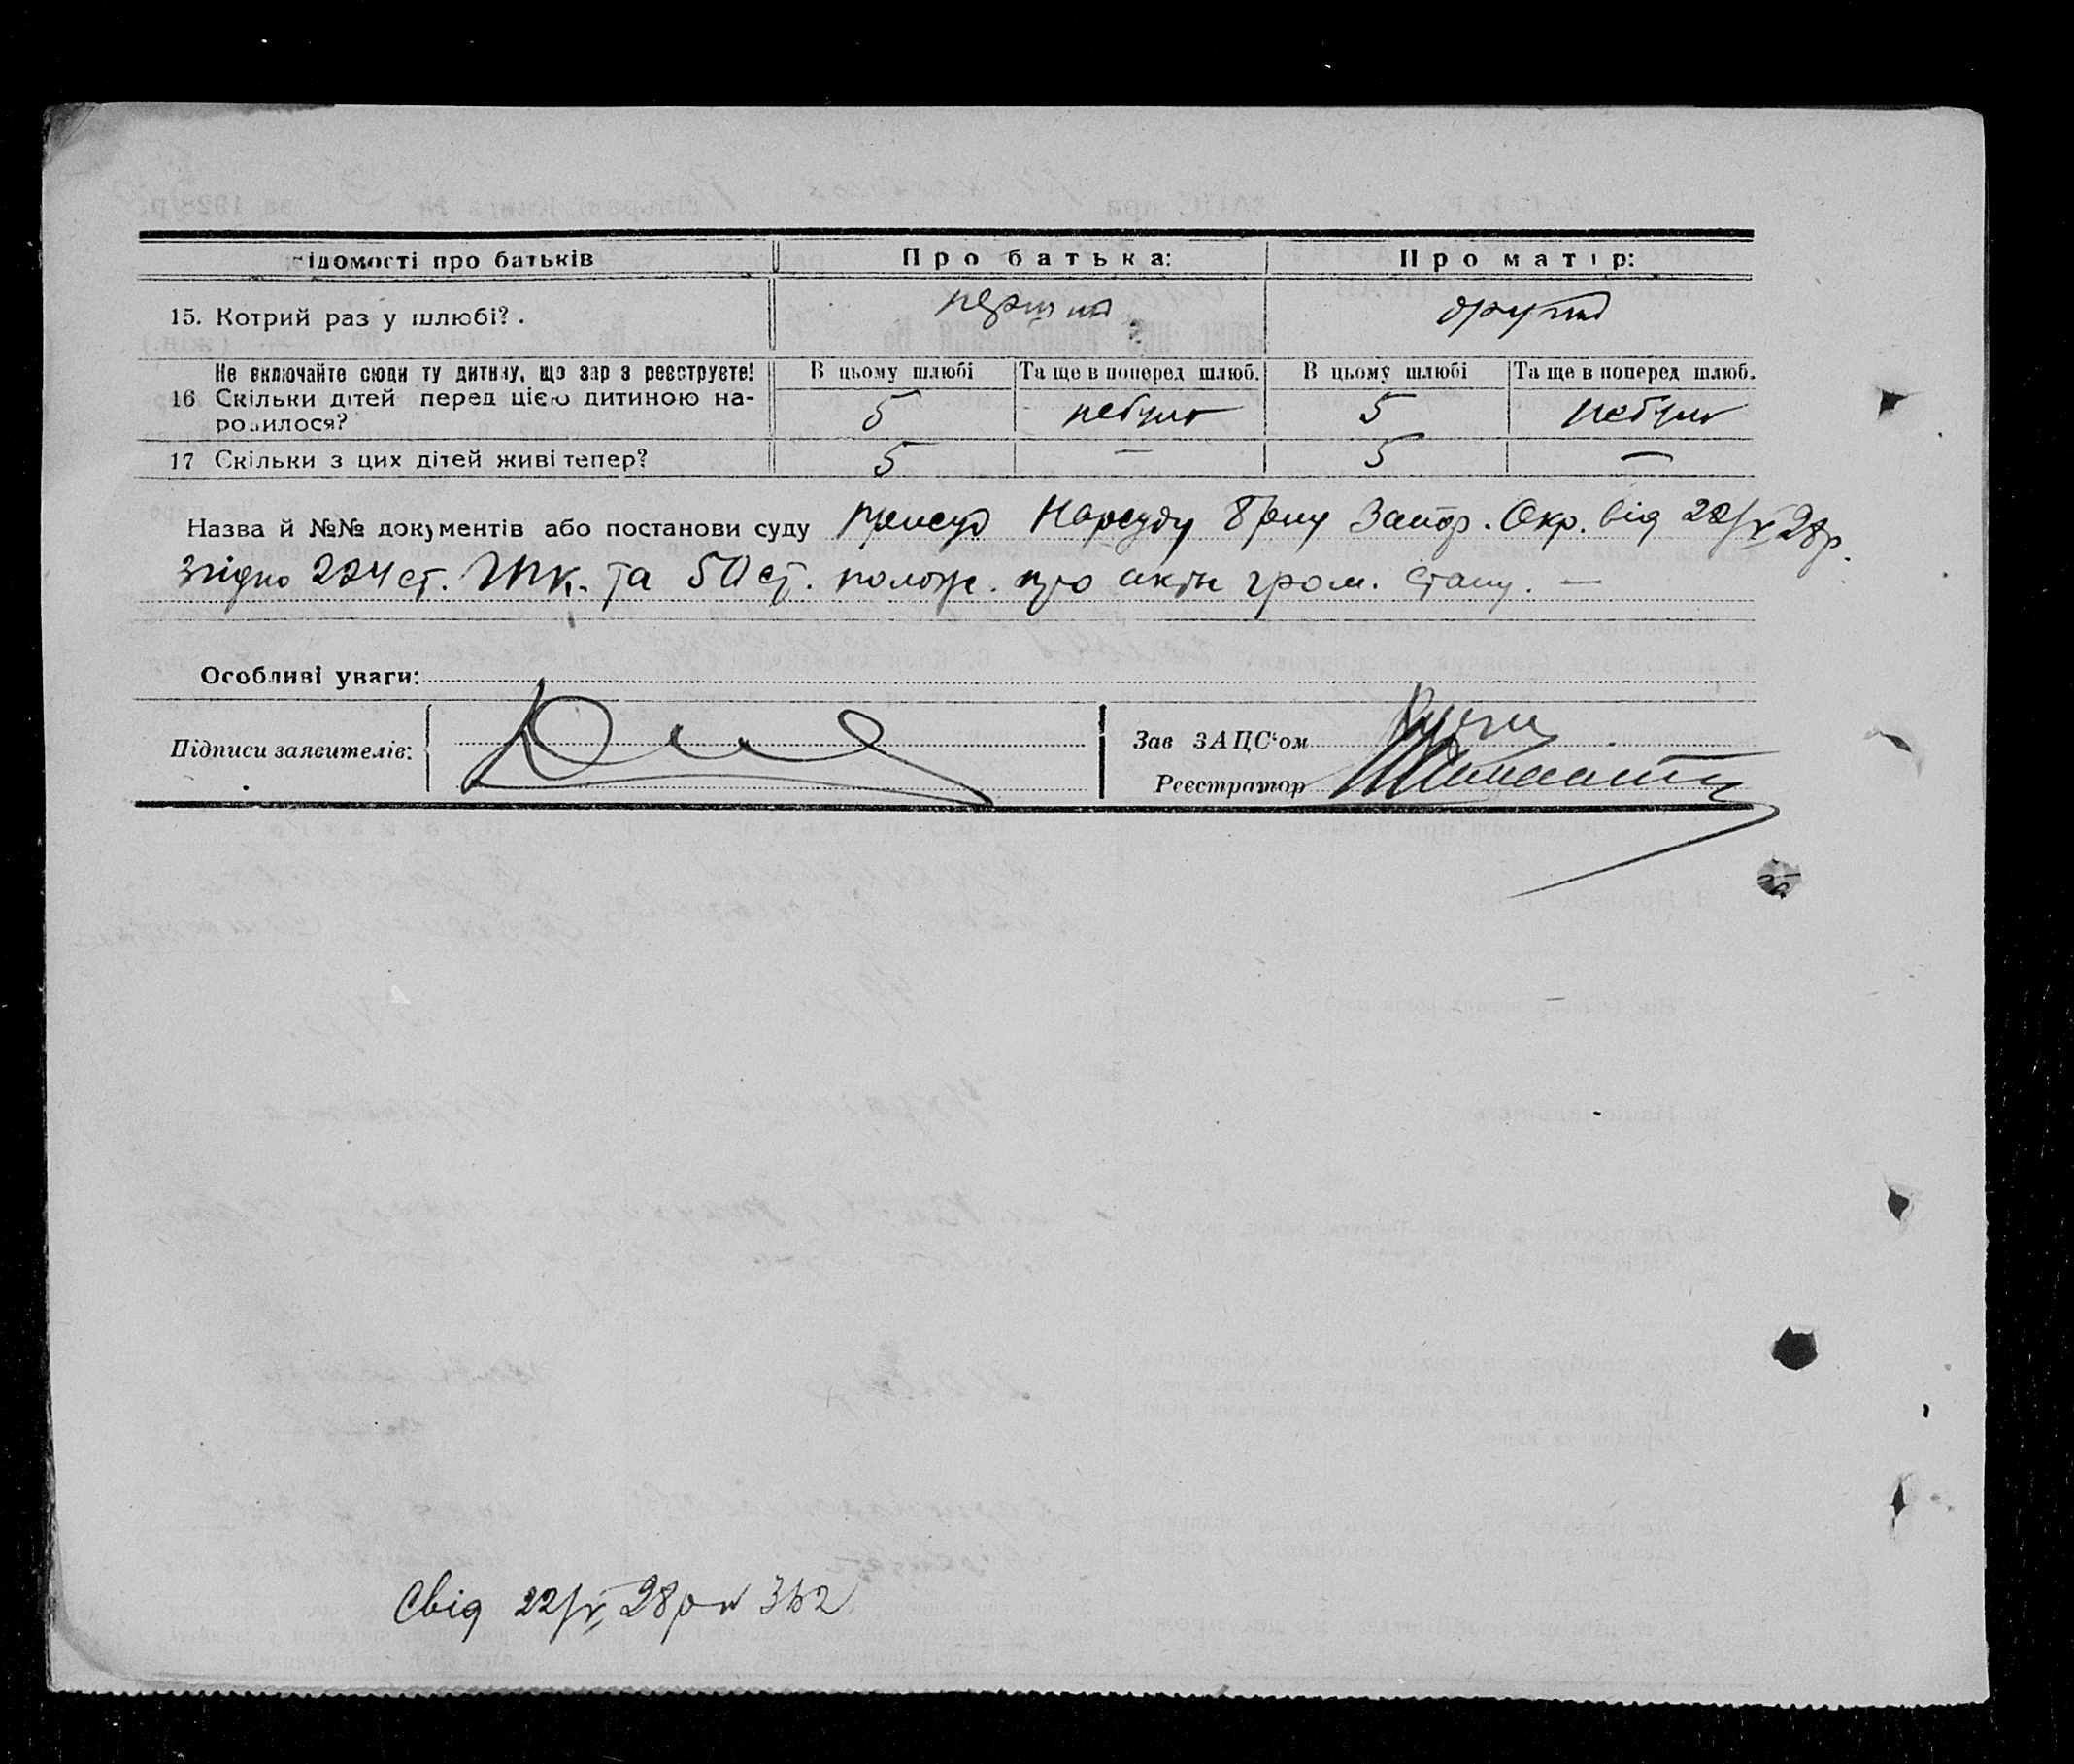 ідомості про батьків Про батька: Про матір:
15. Котрий раз у шлюбі? . перший другий
Не включайте сюди ту дитину, що зар з реєструєте! В цьому шлюбі Та ще в поперед шлюб. В цьому шлюбі Та ще в поперед шлюб.
16 Скільки дітей перед цією дитиною на-
родилося? 5 небуло 5 небуло
17 Скільки з цих дітей живі тепер? 5 — 5 —
Назва й №№ документів або постанови суду Присуд Нарсуду 8 рну Запор. Окр. від 22/V 28р.
Згідно 224 ст. ЦПК. та 50 ст. полож. про акти гром. стану. —
Особливі уваги:
Підписи заявителів: Зав ЗАЦС'ом
Реєстратор
Свід 22/V 28р № 352